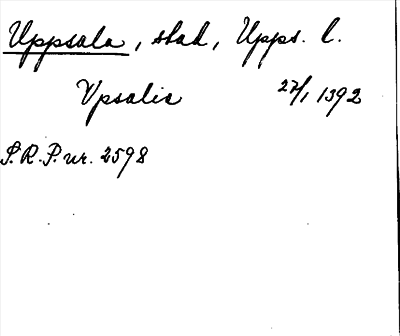 Uppsala, stad, Upps. l.
Vpsalie 27/1 1392
S.R.P. nr. 2598